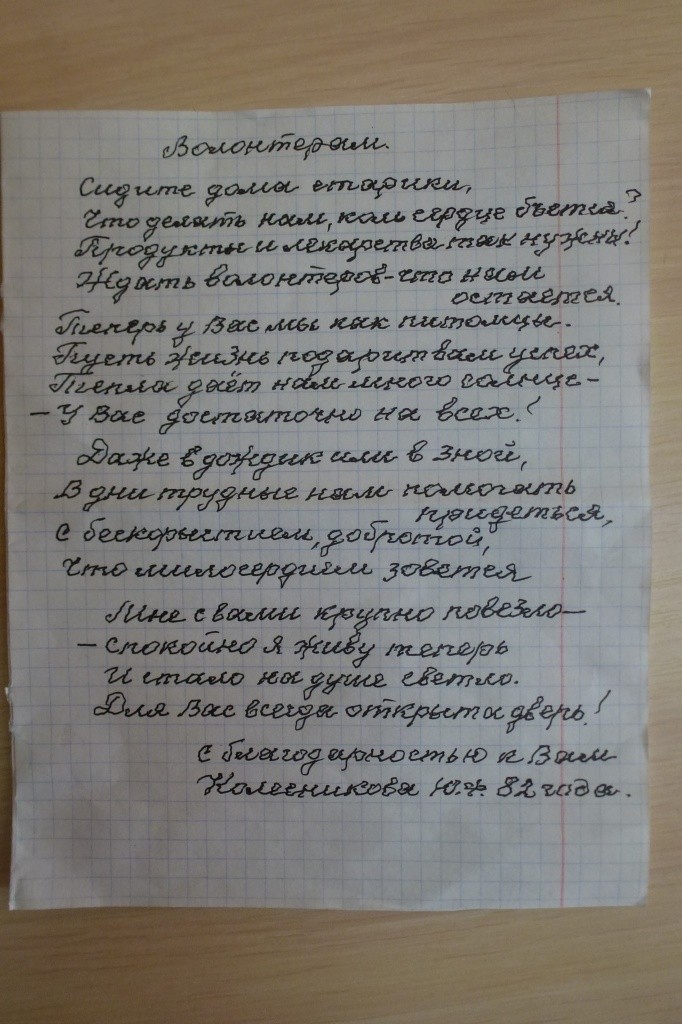 Волонтерам.
Сидите дома старики,
Что делать нам, коль сердце бьется?
Продукты и лекарства так нужны!
Ждать волонтеров - что нам
остается.
Теперь у Вас мы как питомцы.
Пусть жизнь подарит вам успех,
Тепла даёт нам много солнце -
- У Вас достаточно на всех!
Даже в дождик или в зной,
В дни трудные нам помогать
придеться,
С бескорыстием, добротой,
Что милосердием зовется
Мне с вами крупно повезло -
- спокойно я живу теперь
И стало на душе светло.
Для Вас всегда открыта дверь!
С благодарностью к Вам
Колесникова Ю.Ф. 82 года.